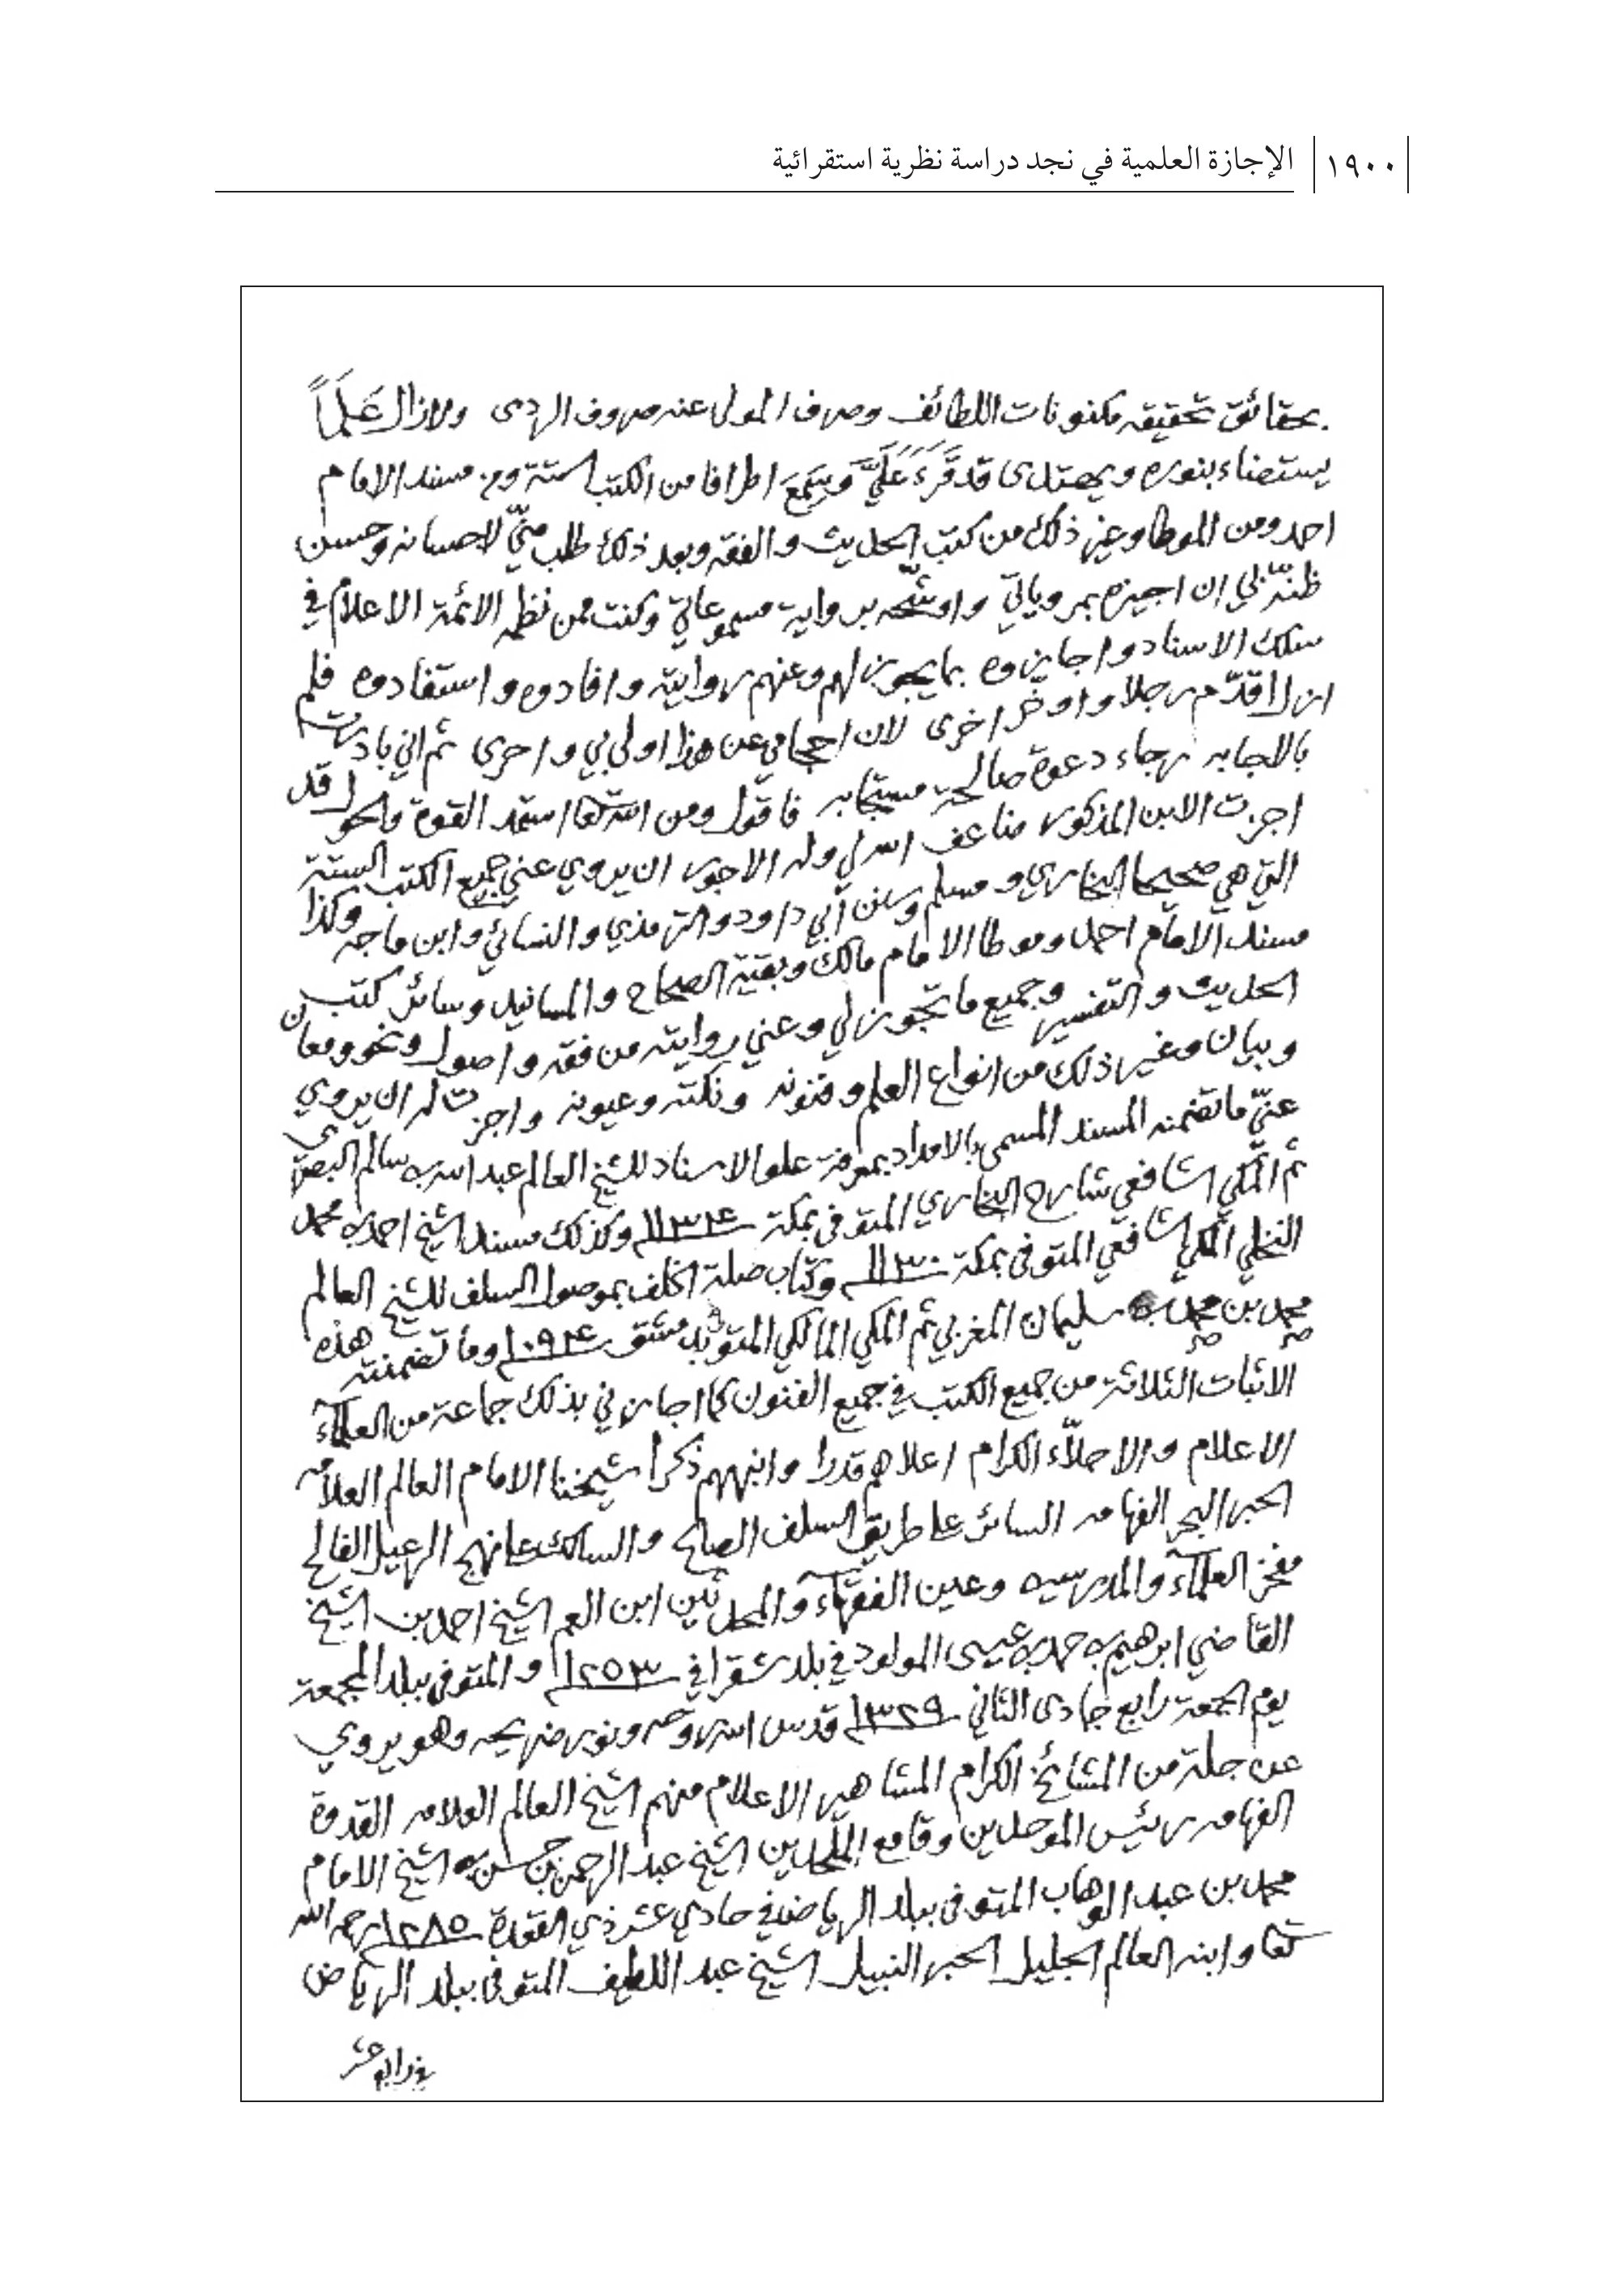 ١٩٠٠ الإجازة العلمية في نجد دراسة نظرية استقرائية
بحقائق تحقيقه مكنونات اللطائف وصرف المولى عنه صروف الردى ولازال عَلَماً
يستضاء بنوره ويهتدى قد قَرَءَ عَلَيَّ وَسَمِعَ اطرافا من الكتب الستة ومن مسند الامام
احمد ومن الموطا وغير ذلك من كتب الحديث والفقه وبعد ذلك طلب منّي لاحسانه وحسن
ظنّه بي ان اجيزه بمروياتي واوشّحه برواية مسموعاتي وكنت ممن نظمه الائمة الاعلام في
سلك الاسناد واجازوه بما يجوز لهم وعنهم روايته وافادوه واستفادوه فلم
ازل اقدّم رجلا واوخر اخرى لان احجامي عن هذا اولى بي واحرى ثم اني بادرته
بالاجابه رجاء دعوة صالحة مستجابه فاقول ومن الله تعالى استمد القوة والحول قد
اجزت الابن المذكور ضاعف الله لي وله الاجور ان يروي عني جميع الكتب الستة
التي هي صحيحا البخاري ومسلم وسنن أبي داود والترمذي والنسائي وابن ماجه وكذا
مسند الامام احمد وموطا الامام مالك وبقية الصحاح والمسانيد وسائر كتب
الحديث والتفسير وجميع ما تجوز لي وعني روايته من فقه واصول ونحو ومعان
وبيان وغير ذلك من انواع العلم وفنونه ونكته وعيونه واجزت له ان يروي
عنّي ما تضمنه المسند المسمى بالامداد بمعرفة علو الاسناد للشيخ العالم عبد الله بن سالم البصري
ثم المكي الشافعي شارح البخاري المتوفى بمكة ١١٣٤ وكذلك مسند الشيخ احمد بن محمد
النخلي المكي الشافعي المتوفى بمكة ١١٣٠ وكتاب صلة الخلف بموصول السلف للشيخ العالم
محمد بن محمد بن سليمان المغربي ثم المكي المالكي المتوفى بدمشق ١٠٩٤ وما تضمنته هذه
الاثبات الثلاثة من جميع الكتب في جميع الفنون كما اجازني بذلك جماعة من العلمآء
الاعلام والاجلّاء الكرام اعلاهم قدرا وانبههم ذكرا شيخنا الامام العالم العلامه
الحبر البحر الفهامه السائر على طريق السلف الصالح والسالك على نهج الرعيل الفالح
مفخر العلمآء والمدرسين وعين الفقهآء والمحدثين ابن العم الشيخ احمد بن الشيخ
القاضي ابرهيم بن حمد بن عيسى المولود في بلد شقرا في ١٢٥٣ والمتوفى ببلد المجمعة
يوم الجمعة رابع جمادى الثاني ١٣٢٩ قدس الله روحه ونور ضريحه وهو يروي
عن جملة من المشائخ الكرام المشاهير الاعلام منهم الشيخ العالم العلامه القدوة
الفهامه رئيس الموحدين وقامع الملحدين الشيخ عبد الرحمن بن حسن بن الشيخ الامام
محمد بن عبد الوهاب المتوفى ببلد الرياض في حادي عشر ذي القعدة ١٢٨٥ رحمه الله
تعالى وابنه العالم الجليل الحبر النبيل الشيخ عبد اللطيف المتوفى ببلد الرياض
في رابع عشر